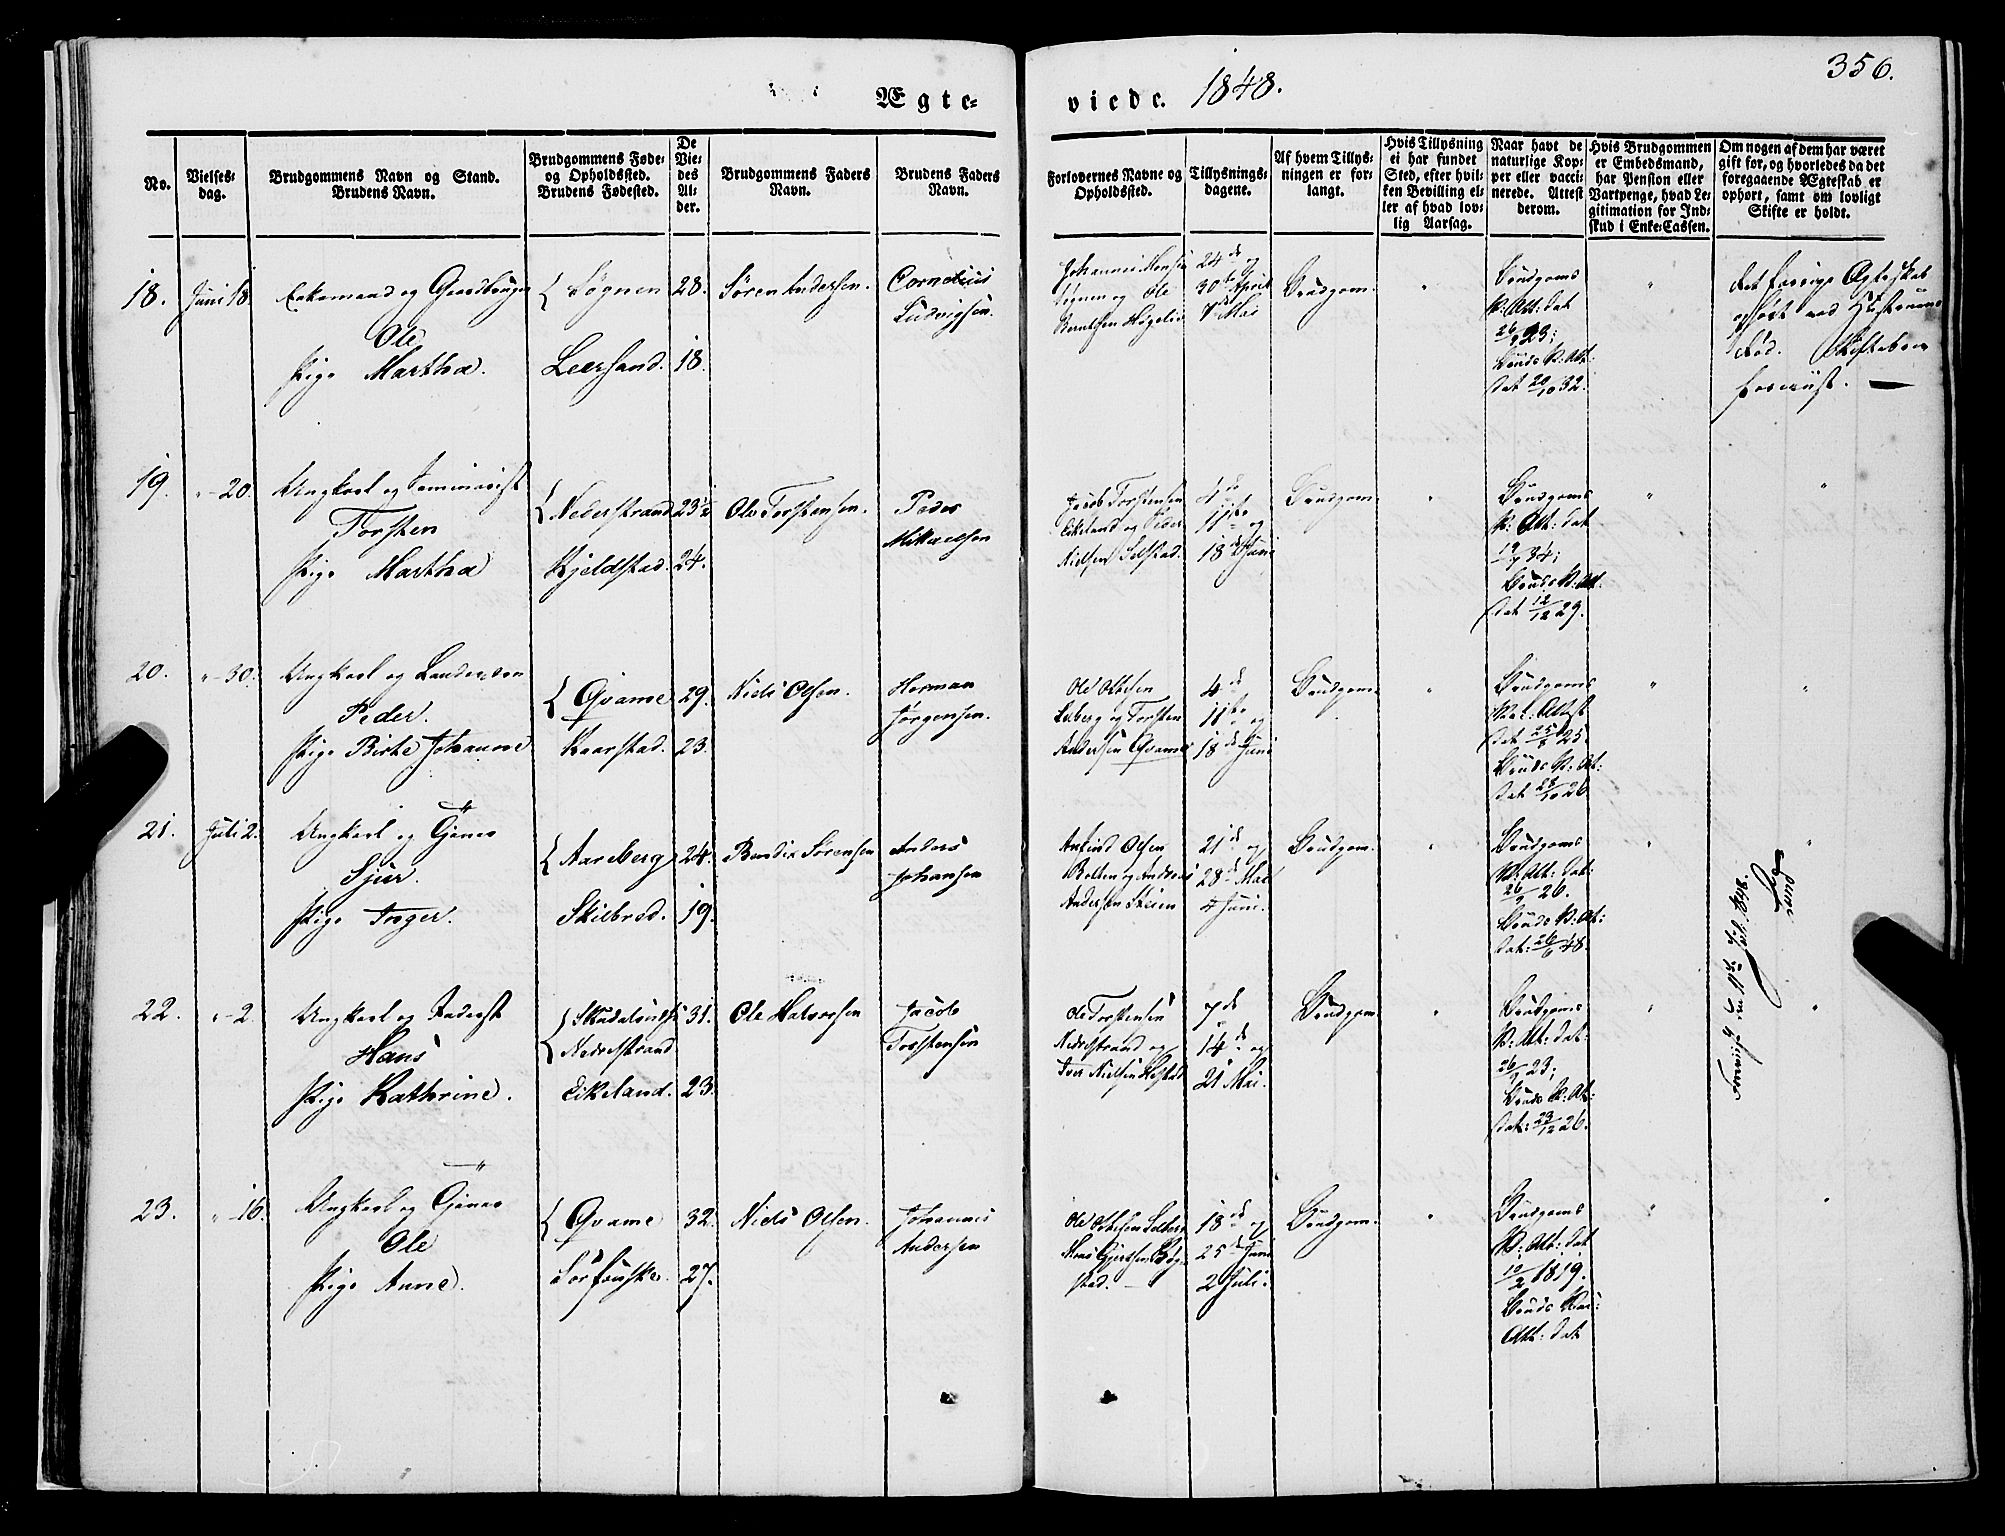 356.
Ægte-
viede. 1848.
No.
Vielses-
dag.
Brudgommens Navn og Stand.
Brudens Navn.
Brudgommens Føde-
og Opholdssted.
Brudens Fødested.
De
Vie-
des
Al-
der.
Brudgommens Faders
Navn.
Brudens Faders
Navn.
Forlovernes Navne og
Opholdssted.
Tillysnings-
dagene.
Af hvem Tillys-
ningen er for-
langt.
Hvis Tillysning
ei har fundet
Sted, efter hvil-
ken Bevilling el-
ler af hvad lov-
lig Aarsag.
Naar havt de
naturlige Kop-
per eller vacci-
nerede. Attest
derom.
Hvis Brudgommen
er Embedsmand,
har Pension eller
Vartpenge, hvad Le-
gitimation for Ind-
skud i Enke-Cassen.
Om nogen af dem har været
gift før, og hvorledes da det
foregaaende Ægteskab er
ophørt, samt om lovligt
Skifte er holdt.
18. Juni 18.
Enkemand og Gaardbruger
Ole
Pige Martha.
Søgnen
Leersand.
28.
18.
Søren Andersen.
Cornelius
Ludvigsen.
Johannes Monsen
Søgnen og Ole
Berntsen Høgelid
24de og
30te April
7de Mai
Brudgom.
Brudgoms
V: Att: dat
26/9 23;
Bruds V: Att:
dat 20/10 32.
Det forrige Ægteskab
ophørt ved Hustruens
Død. Skiftebrev
foreviist.
19. " 20.
Ungkarl og Seminarist
Torsten
Pige Martha
Nederstrand
Kjeldstad.
23½
24.
Ole Torstensen.
Peder
Mikaelsen
Jacob Torstensen
Eikeland og Peder
Nielsen Selstad.
4de
11te og
18de Juni
Brudgom.
Brudgoms
V: Att: dat
34;
Bruds V: Att.
dat 12/12 29.
20. " 30.
Ungkarl og
Peder.
Pige Birte Johanne
Qvame
Kaarstad.
29.
23.
Niels Olsen.
Herman
Jørgensen.
Ole
og Torsten
Andersen Qvame
4de
11te og
18de Juni
Brudgom.
Brudgoms
Vacc: Attest
dat 25/8 25.
Bruds V: At:
dat 28/10 26
21. Juli 2.
Ungkarl og Tjener
Sjur.
Pige Inger.
Aareberg
Skilbred.
24.
19.
Bendix Sørensen
Anders
Johansen
Anfind Olsen
Botten og Andreas
Andersen Skeien
21de og
28de Mai
4 Juni.
Brudgom.
Brudgoms
V: Att: dat:
26/9 26.
Bruds V: At:
dat: 26/6 48.
22. " 2
Ungkarl og
Hans
Pige Kathrine.
Nedrestrand
Eikeland.
31.
23.
Ole Halvorsen
Jacob
Torstensen
Ole Torstensen
Nedrestrand og
Iver Nielsen
7de
14de og
21 Mai.
Brudgom
Brudgoms
V: Att: dat:
26/9 23;
Bruds V: At:
dat: 29/12 26.
Foreviist d. 11te Juli 1848.
23. " 16.
Ungkarl og Tjener
Ole
Pige Anne.
Qvame
Sørfonske.
32.
27.
Niels Olsen.
Johannes
Andersen
Ole
stad.
18de og
25de Juni
2 Juli.
Brudgom.
Brudgoms
V: Att: dat
10/2 1819.
Bruds Vac:
Att: dat